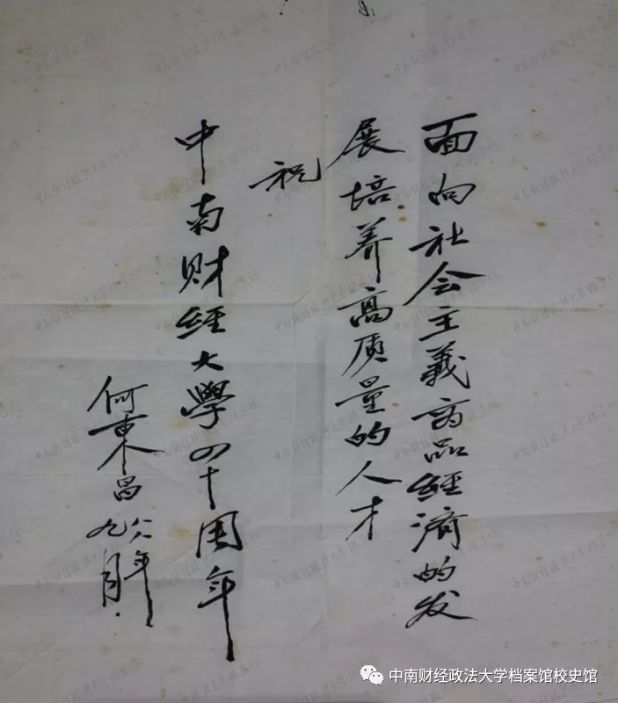 面向社会主義商品經濟的发
展培养高质量的人才
祝
中南财經大學四十周年
何東昌
八八年
九月.
中南财经政法大学档案馆校史馆